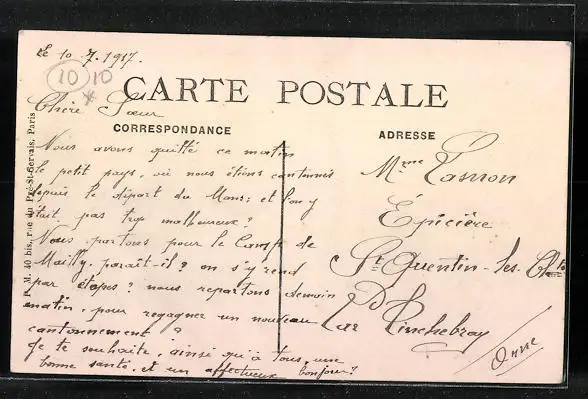 Le 10.7.1917.
10 10
CARTE POSTALE
Chère Sœur
CORRESPONDANCE
Nous avons quitté ce matin
le petit pays, où nous étions cantonnés
depuis le départ du Mans; et l'on y
était pas trop malheureux?
Nous partons pour le Camp de
Mailly, paraît-il? on s'y rend
par étapes? nous repartons demain
matin, pour regagner un nouveau
cantonnement?
Je te souhaite, ainsi qu'à tous, une
bonne santé, et un affectueux bonjour?
ADRESSE
Mme
Épicière
St Quentin-les-
Par Tinchebray
Orne
P. M. 40 bis, rue du Pré-St-Gervais, Paris